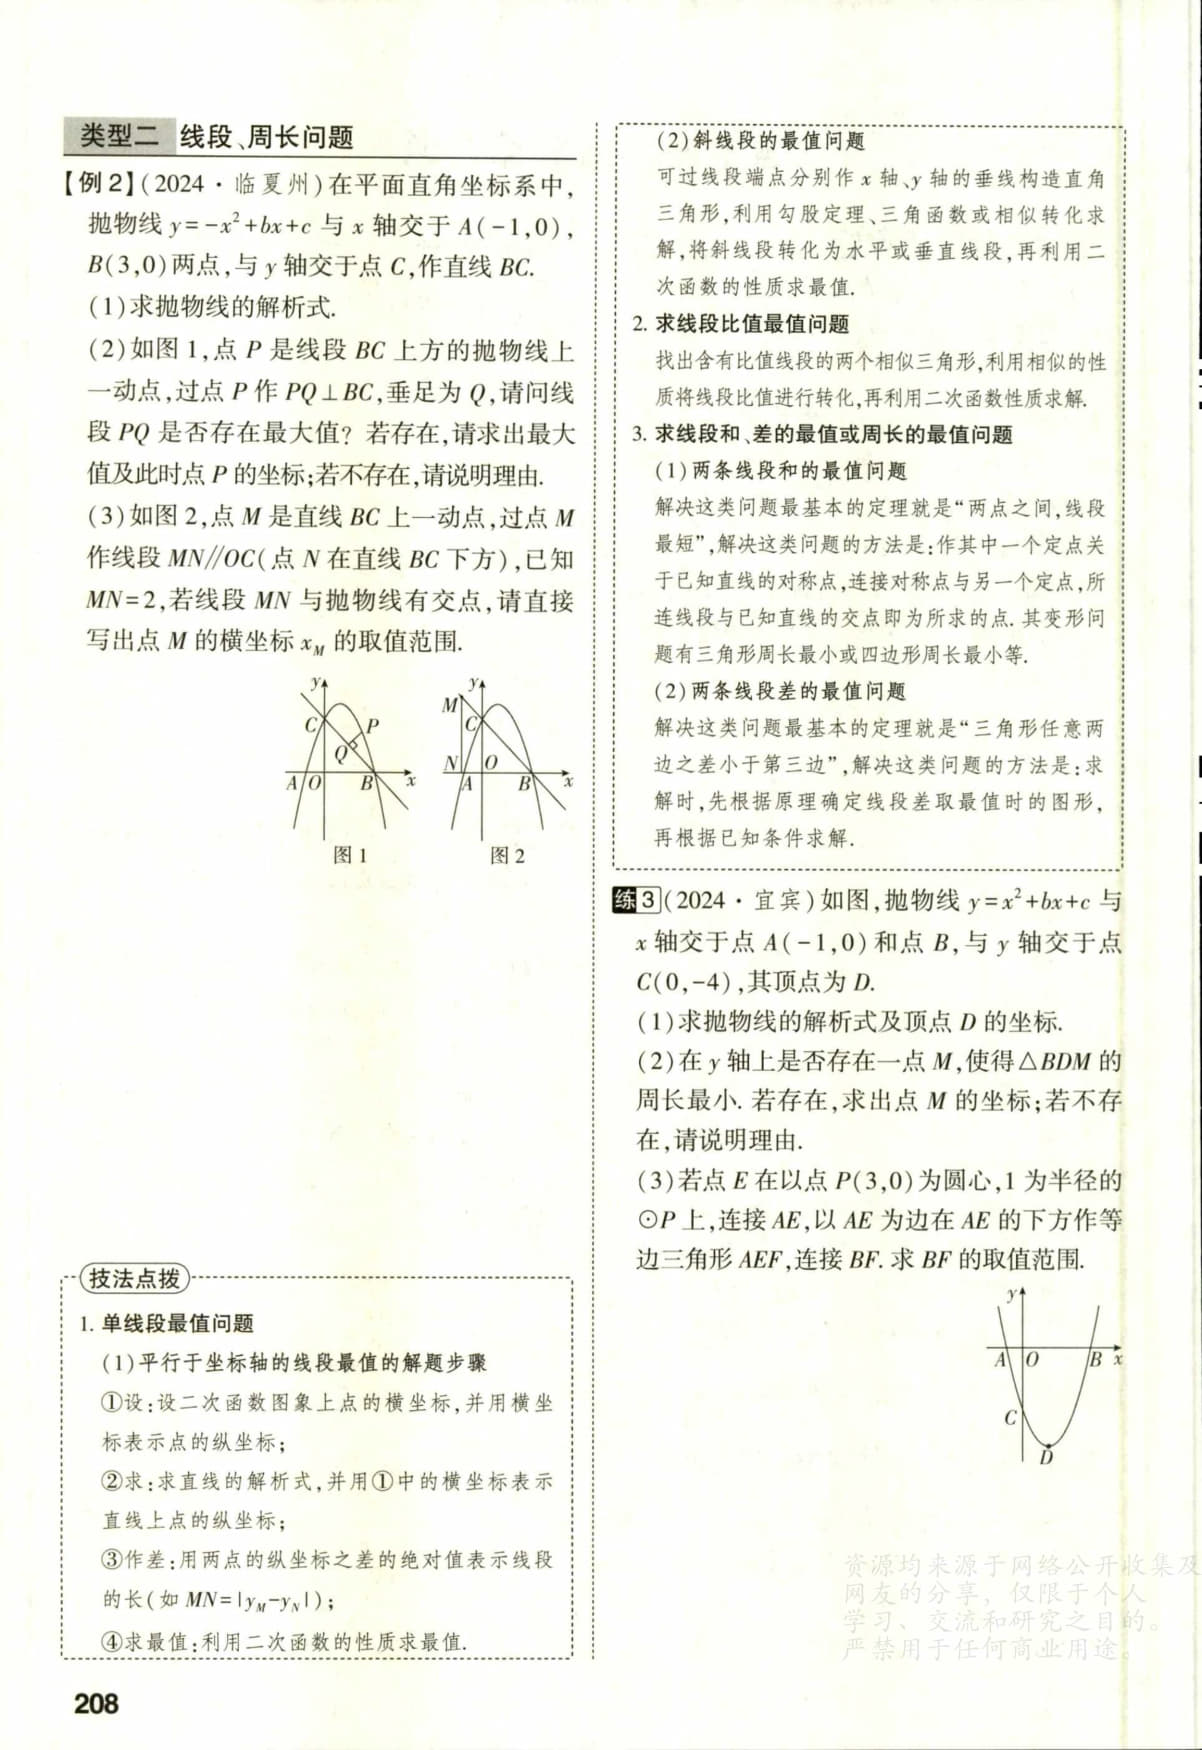 类型二 线段、周长问题
【例2】(2024·临夏州)在平面直角坐标系中,
抛物线 y=-x²+bx+c 与 x 轴交于 A(-1,0),
B(3,0)两点,与 y 轴交于点 C,作直线 BC.
(1)求抛物线的解析式.
(2)如图1,点 P 是线段 BC 上方的抛物线上
一动点,过点 P 作 PQ⊥BC,垂足为 Q,请问线
段 PQ 是否存在最大值？若存在,请求出最大
值及此时点 P 的坐标;若不存在,请说明理由.
(3)如图2,点 M 是直线 BC 上一动点,过点 M
作线段 MN∥OC(点 N 在直线 BC 下方),已知
MN=2,若线段 MN 与抛物线有交点,请直接
写出点 M 的横坐标 x_M 的取值范围.
y
C
P
Q
A
O
B
x
图1
y
M
C
N
O
A
B
x
图2
技法点拨
1. 单线段最值问题
(1)平行于坐标轴的线段最值的解题步骤
①设:设二次函数图象上点的横坐标,并用横坐
标表示点的纵坐标;
②求:求直线的解析式,并用①中的横坐标表示
直线上点的纵坐标;
③作差:用两点的纵坐标之差的绝对值表示线段
的长(如 MN=|y_M-y_N|);
④求最值:利用二次函数的性质求最值.
208
(2)斜线段的最值问题
可过线段端点分别作 x 轴、y 轴的垂线构造直角
三角形,利用勾股定理、三角函数或相似转化求
解,将斜线段转化为水平或垂直线段,再利用二
次函数的性质求最值.
2. 求线段比值最值问题
找出含有比值线段的两个相似三角形,利用相似的性
质将线段比值进行转化,再利用二次函数性质求解.
3. 求线段和、差的最值或周长的最值问题
(1)两条线段和的最值问题
解决这类问题最基本的定理就是“两点之间,线段
最短”,解决这类问题的方法是:作其中一个定点关
于已知直线的对称点,连接对称点与另一个定点,所
连线段与已知直线的交点即为所求的点. 其变形问
题有三角形周长最小或四边形周长最小等.
(2)两条线段差的最值问题
解决这类问题最基本的定理就是“三角形任意两
边之差小于第三边”,解决这类问题的方法是:求
解时,先根据原理确定线段差取最值时的图形,
再根据已知条件求解.
练3 (2024·宜宾)如图,抛物线 y=x²+bx+c 与
x 轴交于点 A(-1,0)和点 B,与 y 轴交于点
C(0,-4),其顶点为 D.
(1)求抛物线的解析式及顶点 D 的坐标.
(2)在 y 轴上是否存在一点 M,使得△BDM 的
周长最小. 若存在,求出点 M 的坐标;若不存
在,请说明理由.
(3)若点 E 在以点 P(3,0)为圆心,1 为半径的
⊙P 上,连接 AE,以 AE 为边在 AE 的下方作等
边三角形 AEF,连接 BF. 求 BF 的取值范围.
y
A
O
B
x
C
D
资源均来源于网络公开收集及
网友的分享，仅限于个人
学习、交流和研究之目的。
严禁用于任何商业用途。